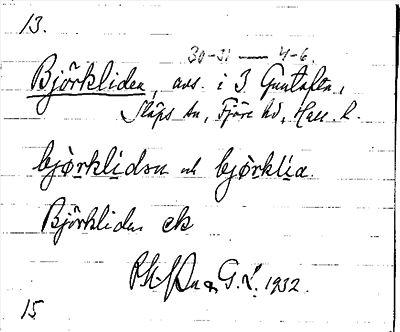 13.
30-31 — 4-6.
Björkliden, avs. i 3 Guntoften,
Släps sn, Fjäre hd, Hall. l.
bjørklidən ok bjørklia.
Björkliden ek
G. L. 1932.
15